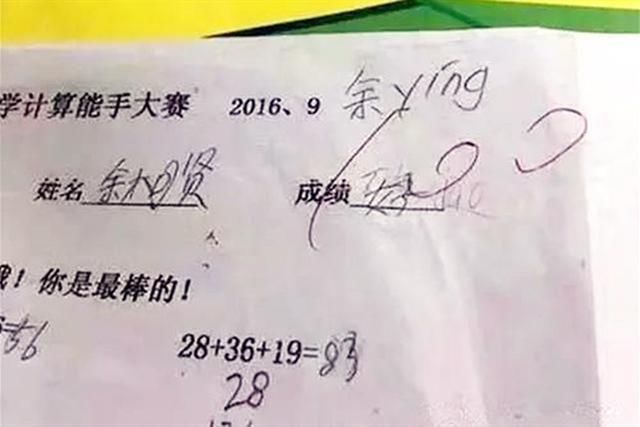 学计算能手大赛 2016、9 余ying
姓名 余 贤 成绩 100
！你是最棒的！
=56 28+36+19=83
28